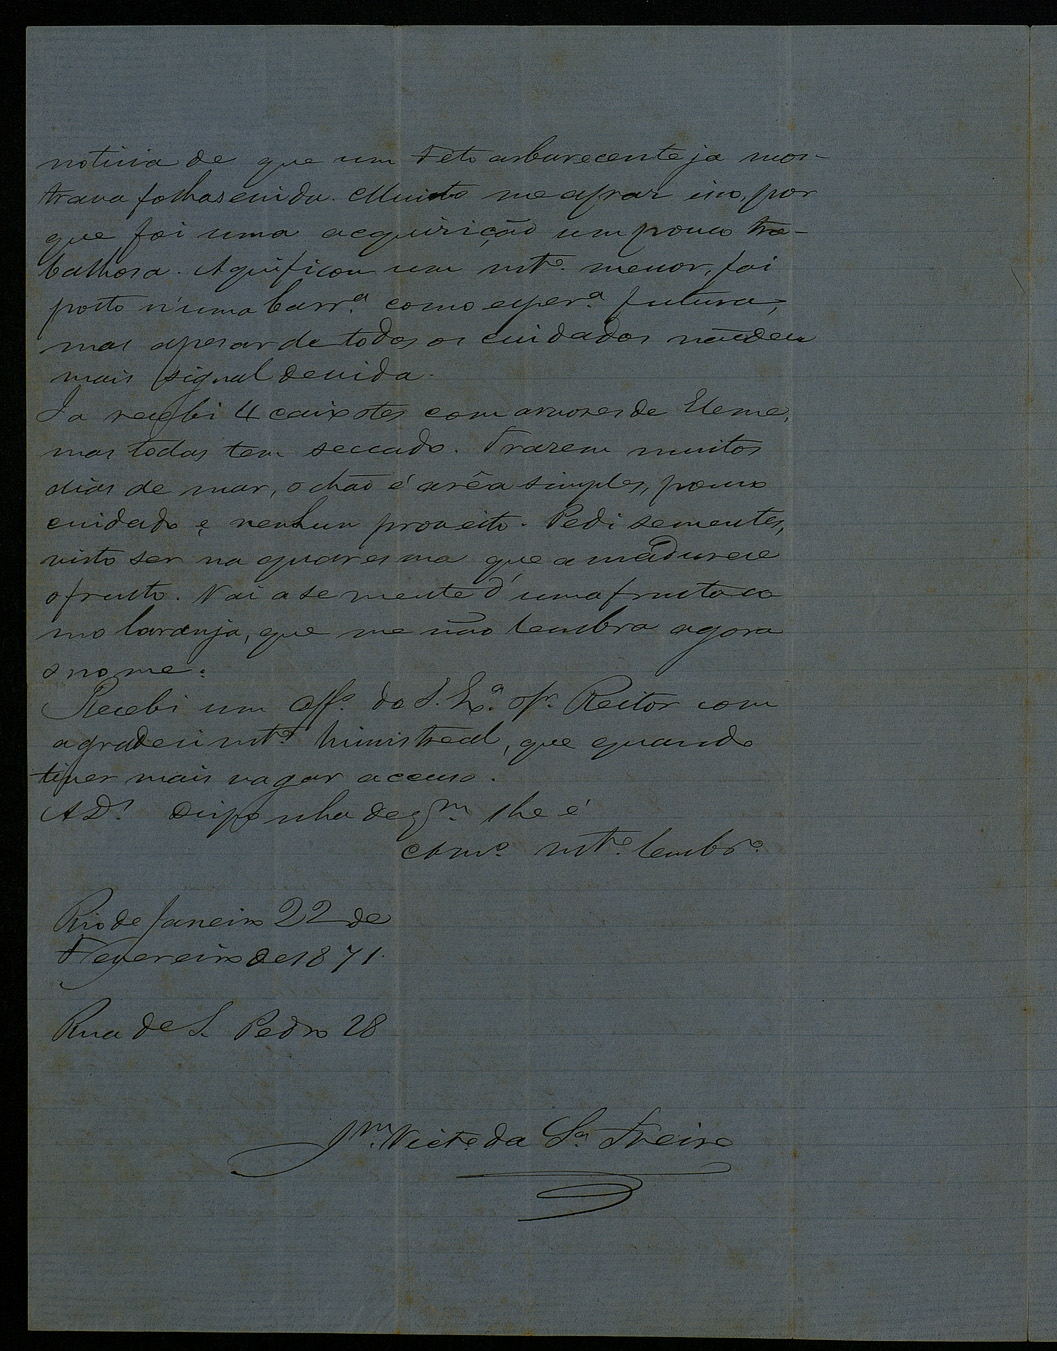 noticia de que um Feto arburecente ja mos-
trava folhas e vida. Muito me apraz isso, por
que foi uma acquisição um pouco tra-
balhosa. Aqui ficou um mt.º menor, foi
posto n'uma barr.ª como esper.ª futura,
mas apesar de todos os cuidados não deu
mais signal de vida.
Ja recebi 4 caixotes com arvores de
mas todas tem seccado. Trazem muitos
dias de mar, o chão é arêa simples, pouco
cuidado e nenhum proveito. Pedi sementes,
visto ser na quaresma que amadurece
o fructo. Vai a semente d'uma fructa co
mo laranja, que me não lembra agora
o nome.
Recebi um off.º do S. Ex.ª o Sr. Reitor com
agradecimt.º que quando
tiver mais vagar accuso.
A D.s disponha de q.m lhe é
com mt.º
Rio de Janeiro 22 de
Fevereiro de 1871.
Rua de S. Pedro 28
J.m Vict.e da S.a Freire